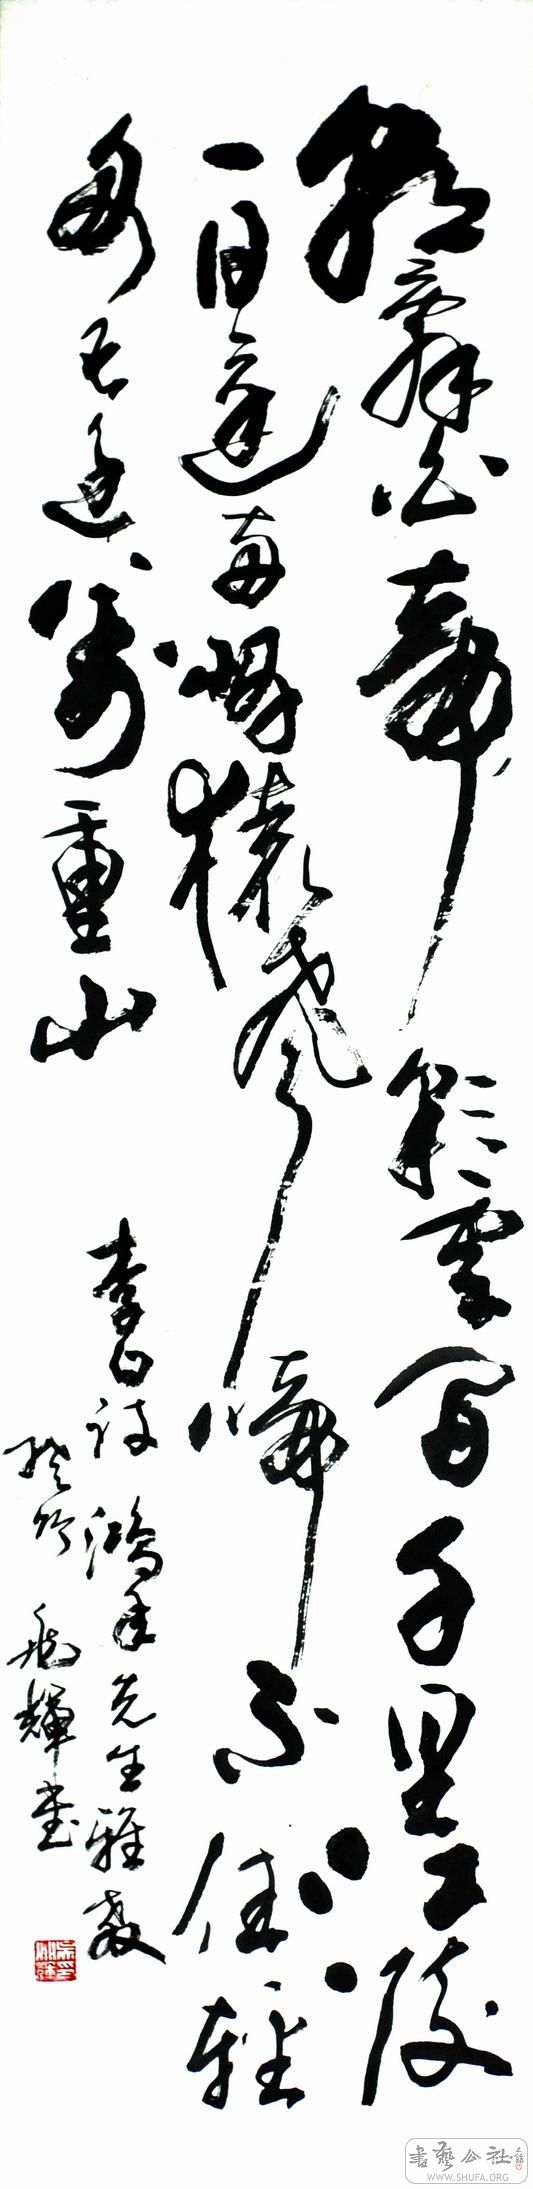 朝辭白帝彩雲間千里江陵
一日還兩岸猿聲啼不住輕
舟已過萬重山
李白詩 鴻年先生雅教
飛輝書
書藝公社
WWW.SHUFA.ORG